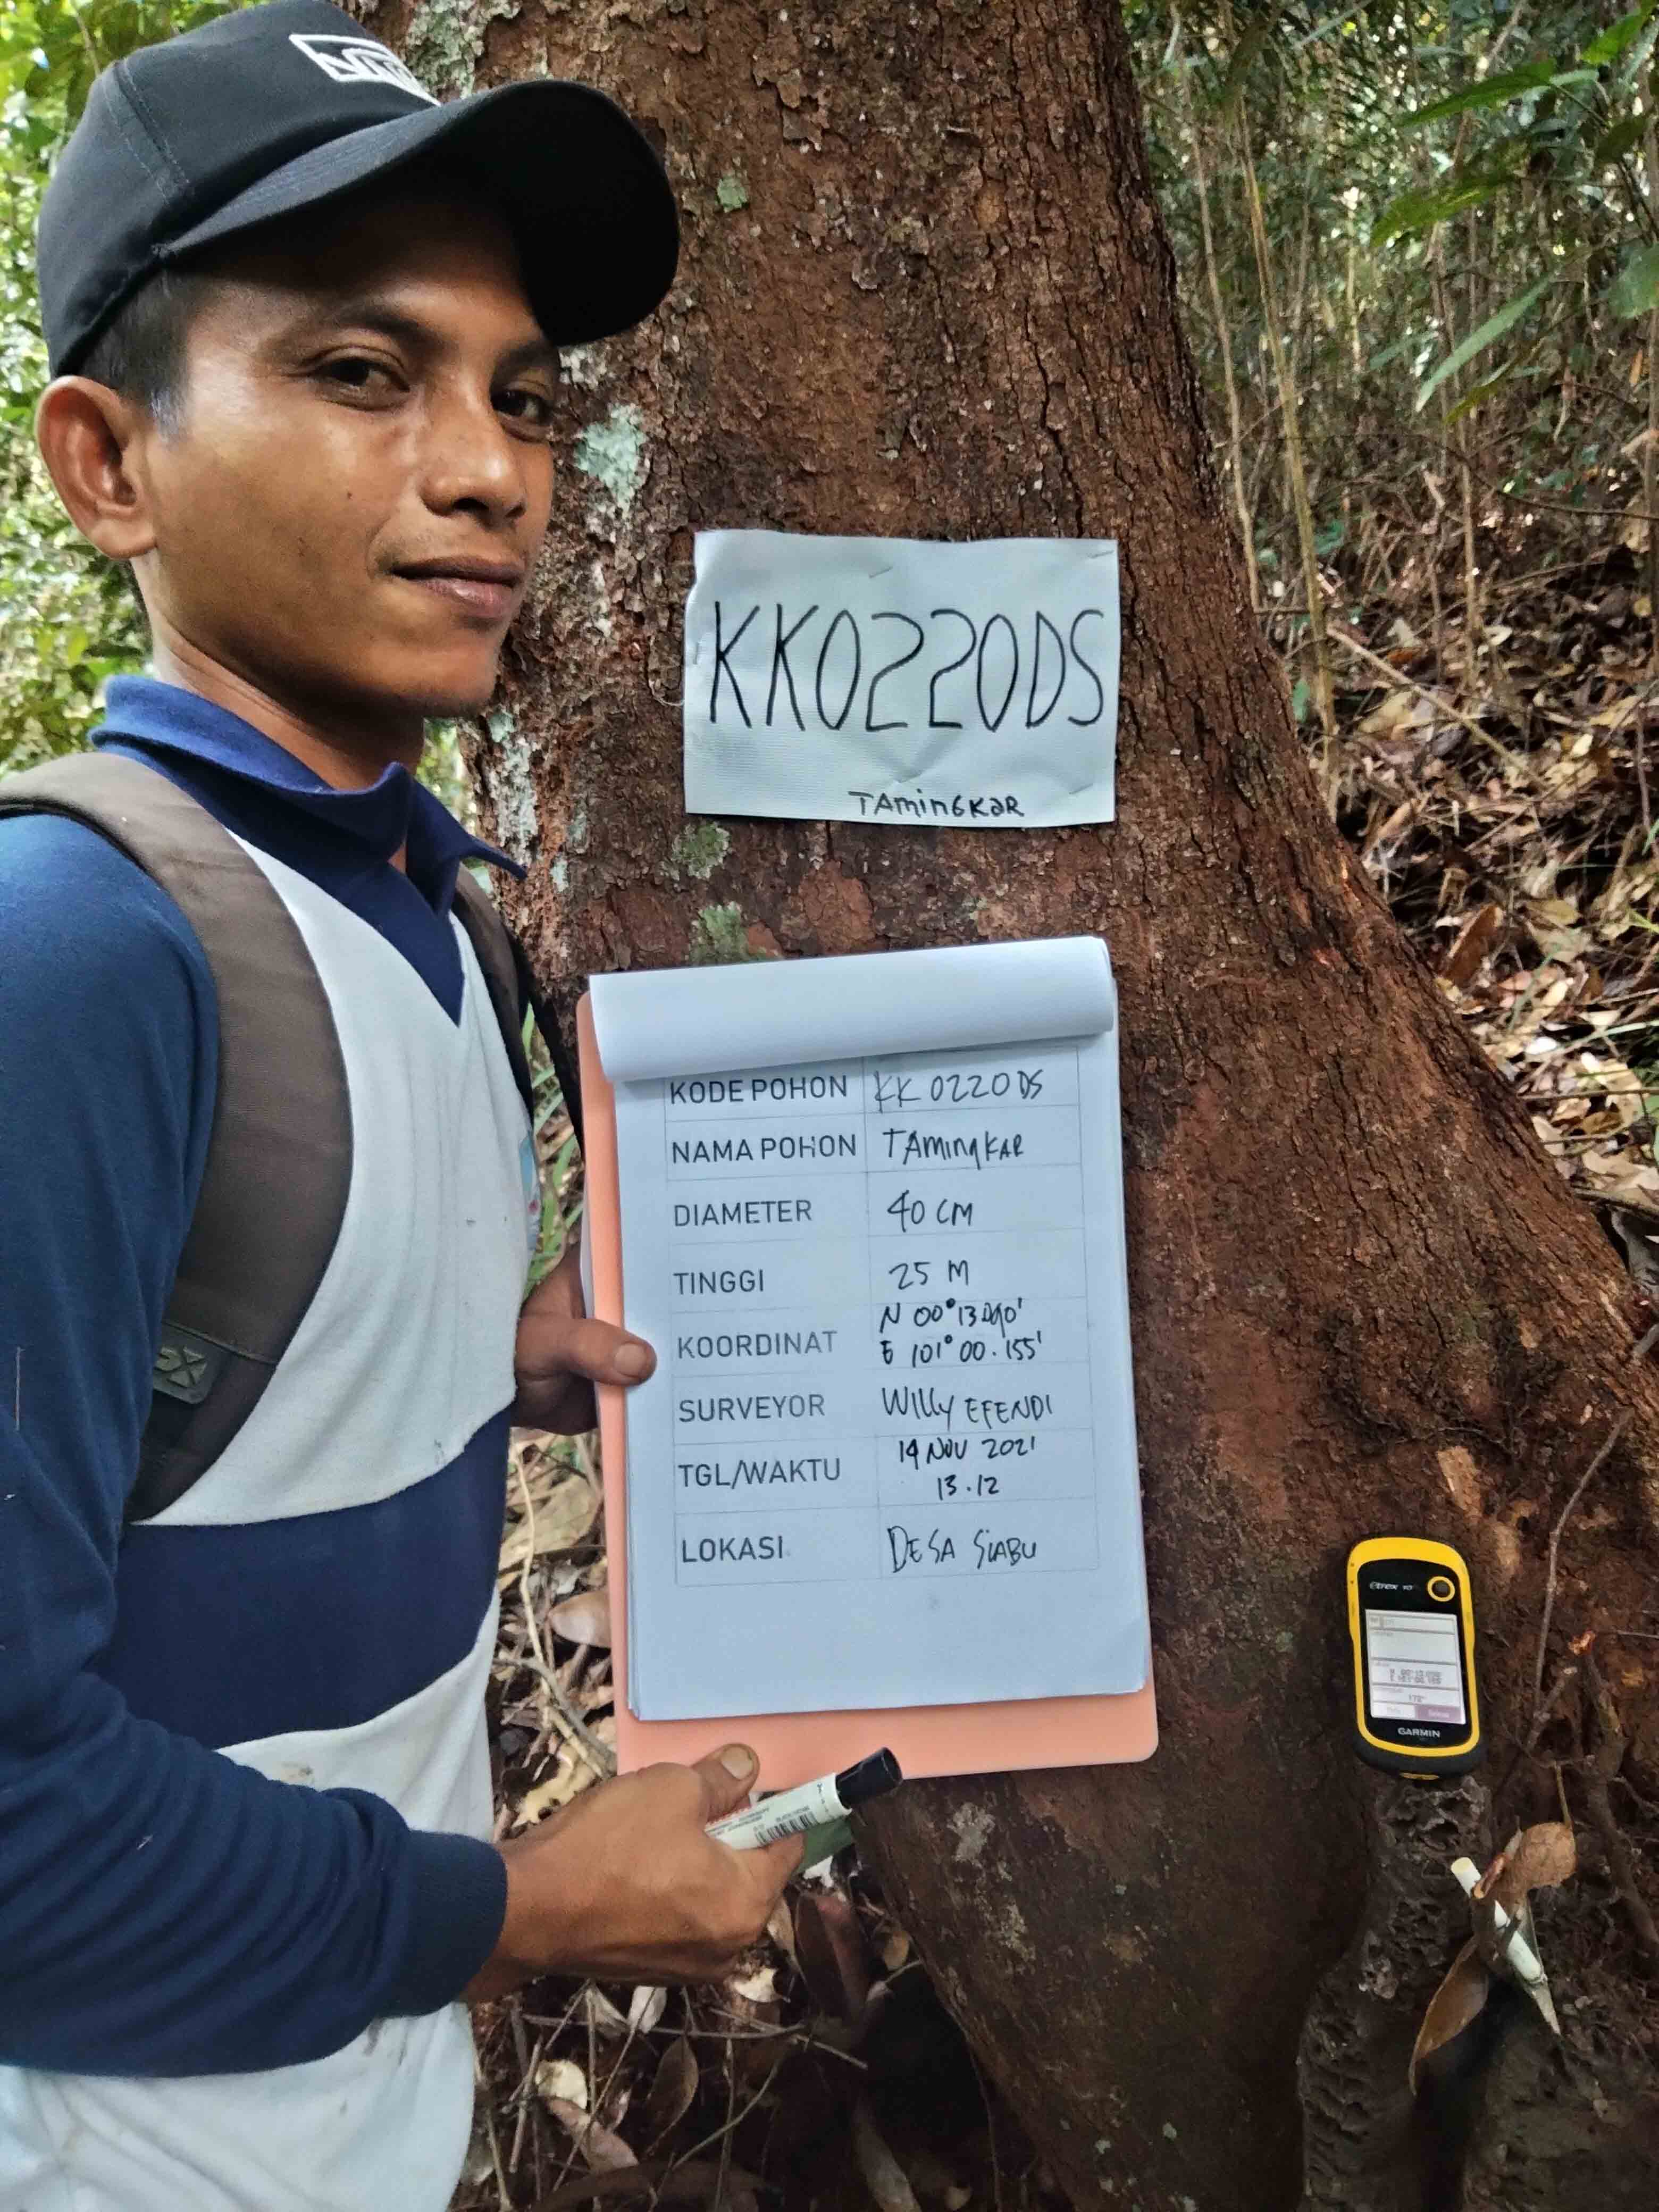 KK0220DS
TAMINGKAR
KODE POHON KK 0220 DS
NAMA POHON TAMINGKAR
DIAMETER 40 CM
TINGGI 25 M
KOORDINAT N 00° E 101° 00.155'
SURVEYOR Willy EFENDI
TGL/WAKTU 14 NOV 2021 13.12
LOKASI DESA SIABU
eTrex 10
GARMIN